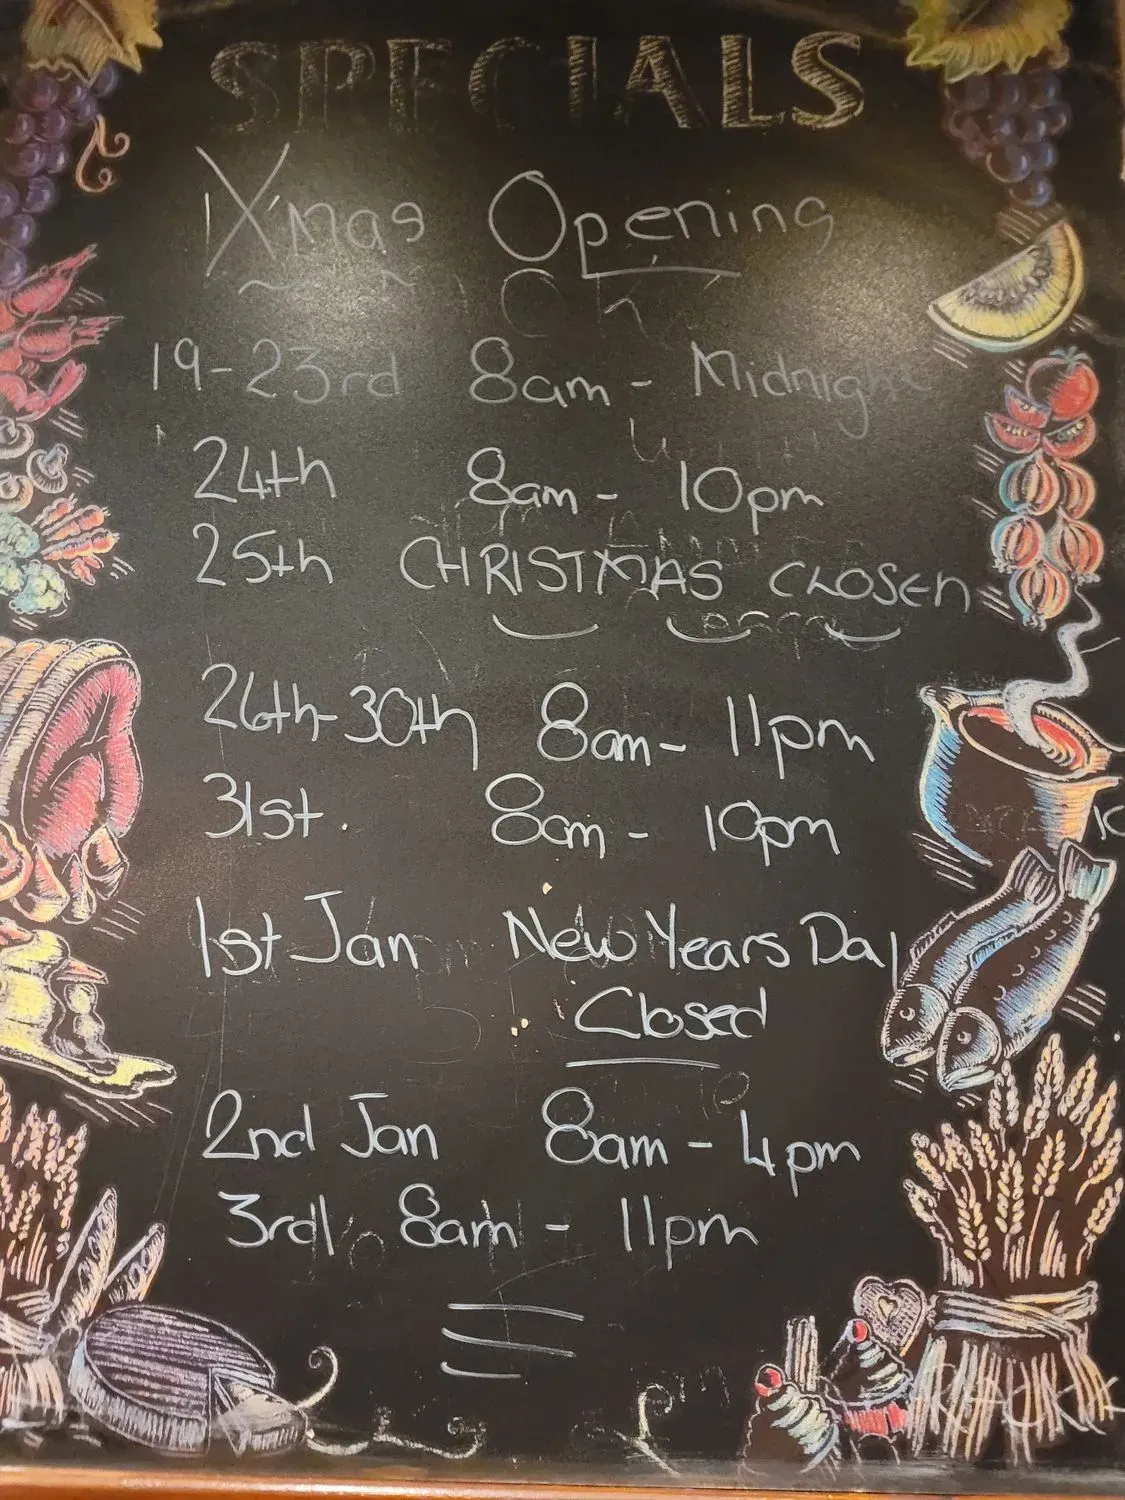 SPECIALS
Xmas Opening
19-23rd 8am - Midnight
24th 8am - 10pm
25th CHRISTMAS CLOSED
26th-30th 8am - 11pm
31st. 8am - 10pm
1st Jan New Years Day
Closed
2nd Jan 8am - 4pm
3rd 8am - 11pm